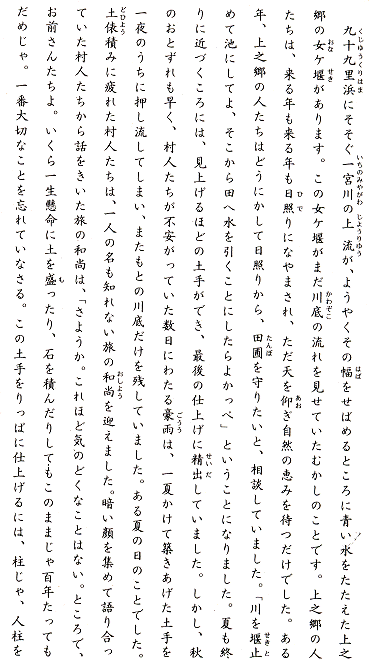 九十九里浜にそそぐ一宮川の上流が、ようやくその幅をせばめるところに青い水をたたえた上之
郷の女ケ堰があります。この女ケ堰がまだ川底の流れを見せていたむかしのことです。上之郷の人
たちは、来る年も来る年も日照りになやまされ、ただ天を仰ぎ自然の恵みを待つだけでした。ある
年、上之郷の人たちはどうにかして日照りから、田圃を守りたいと、相談していました。「川を堰止
めて池にしてよ、そこから田へ水を引くことにしたらよかっぺ」ということになりました。夏も終
りに近づくころには、見上げるほどの土手ができ、最後の仕上げに精出していました。しかし、秋
のおとずれも早く、村人たちが不安がっていた数日にわたる豪雨は、一夏かけて築きあげた土手を
一夜のうちに押し流してしまい、またもとの川底だけを残していました。ある夏の日のことでした。
土俵積みに疲れた村人たちは、一人の名も知れない旅の和尚を迎えました。暗い顔を集めて語り合っ
ていた村人たちから話をきいた旅の和尚は、「さようか。これほど気のどくなことはない。ところで、
お前さんたちよ。いくら一生懸命に土を盛ったり、石を積んだりしてもこのままじゃ百年たっても
だめじゃ。一番大切なことを忘れていなさる。この土手をりっぱに仕上げるには、柱じゃ、人柱を